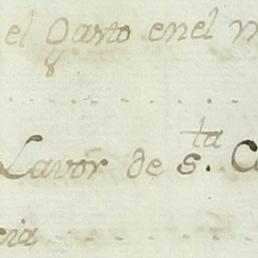 el Qarto enel
Lavor de s.ta
cia